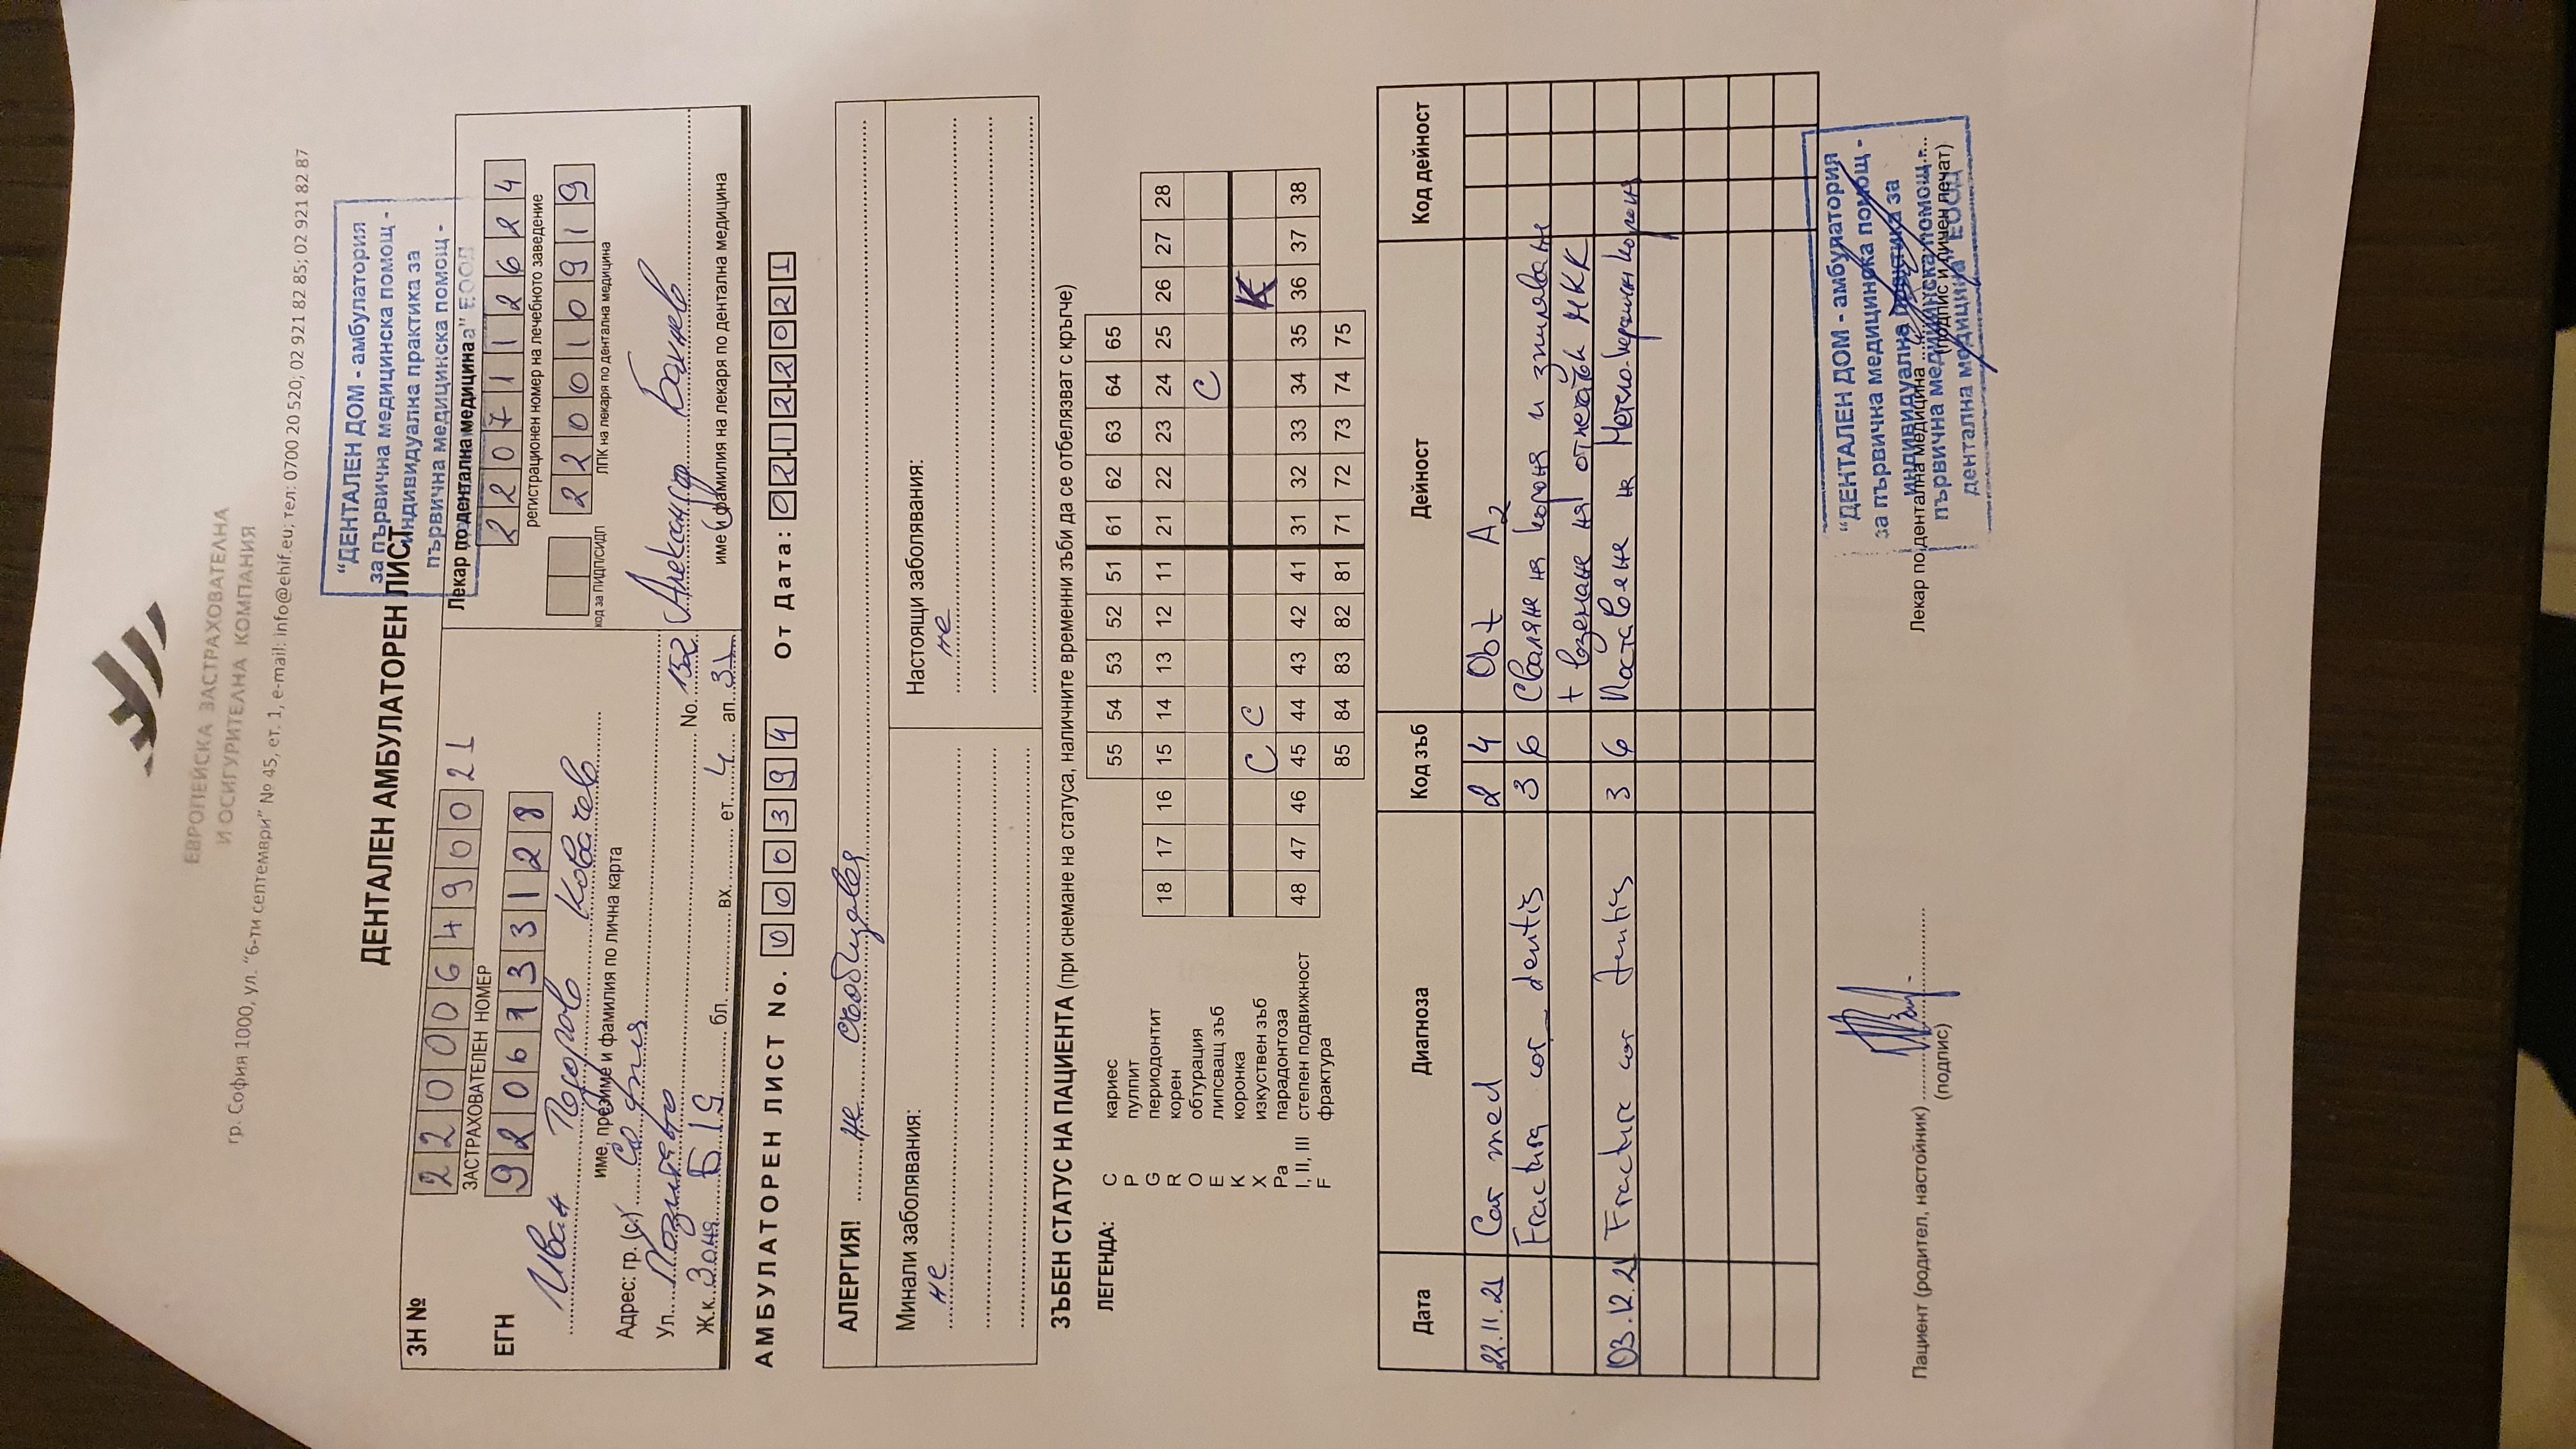 ЕВРОПЕЙСКА ЗАСТРАХОВАТЕЛНА
И ОСИГУРИТЕЛНА КОМПАНИЯ
гр. София 1000, ул. "6-ти септември" № 45, ет. 1, e-mail: info@ehif.eu; тел: 0700 20 520; 02 921 82 85; 02 921 82 87
"ДЕНТАЛЕН ДОМ - амбулатория
за първична медицинска помощ -
индивидуална практика за
първична медицинска помощ -
ЕООД
ДЕНТАЛЕН АМБУЛАТОРЕН ЛИСТ
ЗН № 220006490021
ЗАСТРАХОВАТЕЛЕН НОМЕР
ЕГН 9206733128
Иван Тодоров Ковачев
име, презиме и фамилия по лична карта
Адрес: гр. (с.) София
Ул. Позитано No. 152
Ж.к. Зона Б19 бл. вх. ет. 4 ап. 31
Лекар по дентална медицина
2207112624
регистрационен номер на лечебното заведение
220010919
код за ПИДП/СИДП ЛПК на лекаря по дентална медицина
Александър
име и фамилия на лекаря по дентална медицина
АМБУЛАТОРЕН ЛИСТ No. 000394 От Дата: 02.12.2021
АЛЕРГИЯ! не съобщава
Минали заболявания: Настоящи заболявания:
не не
ЗЪБЕН СТАТУС НА ПАЦИЕНТА (при снемане на статуса, наличните временни зъби да се отбелязват с кръгче)
ЛЕГЕНДА:
C кариес
P пулпит
G периодонтит
R корен
O обтурация
E липсващ зъб
K коронка
X изкуствен зъб
Pa парадонтоза
I, II, III степен подвижност
F фрактура
55 54 53 52 51 61 62 63 64 65
18 17 16 15 14 13 12 11 21 22 23 24 25 26 27 28
C
C C K
48 47 46 45 44 43 42 41 31 32 33 34 35 36 37 38
85 84 83 82 81 71 72 73 74 75
Дата Диагноза Код зъб Дейност Код дейност
22.11.21 Car med 2 4 Obt A2
Fractura cor dentis 3 6 Сваляне на корона и изпиляване
+ вземане на отпечатък МКК
03.12.21 Fractura cor dentis 3 6 Поставяне на Метало-керамична корона
Пациент (родител, настойник)
(подпис)
Лекар по дентална медицина
(подпис и личен печат)
"ДЕНТАЛЕН ДОМ - амбулатория
за първична медицинска помощ -
индивидуална практика за
първична медицинска помощ -
дентална медицина" ЕООД